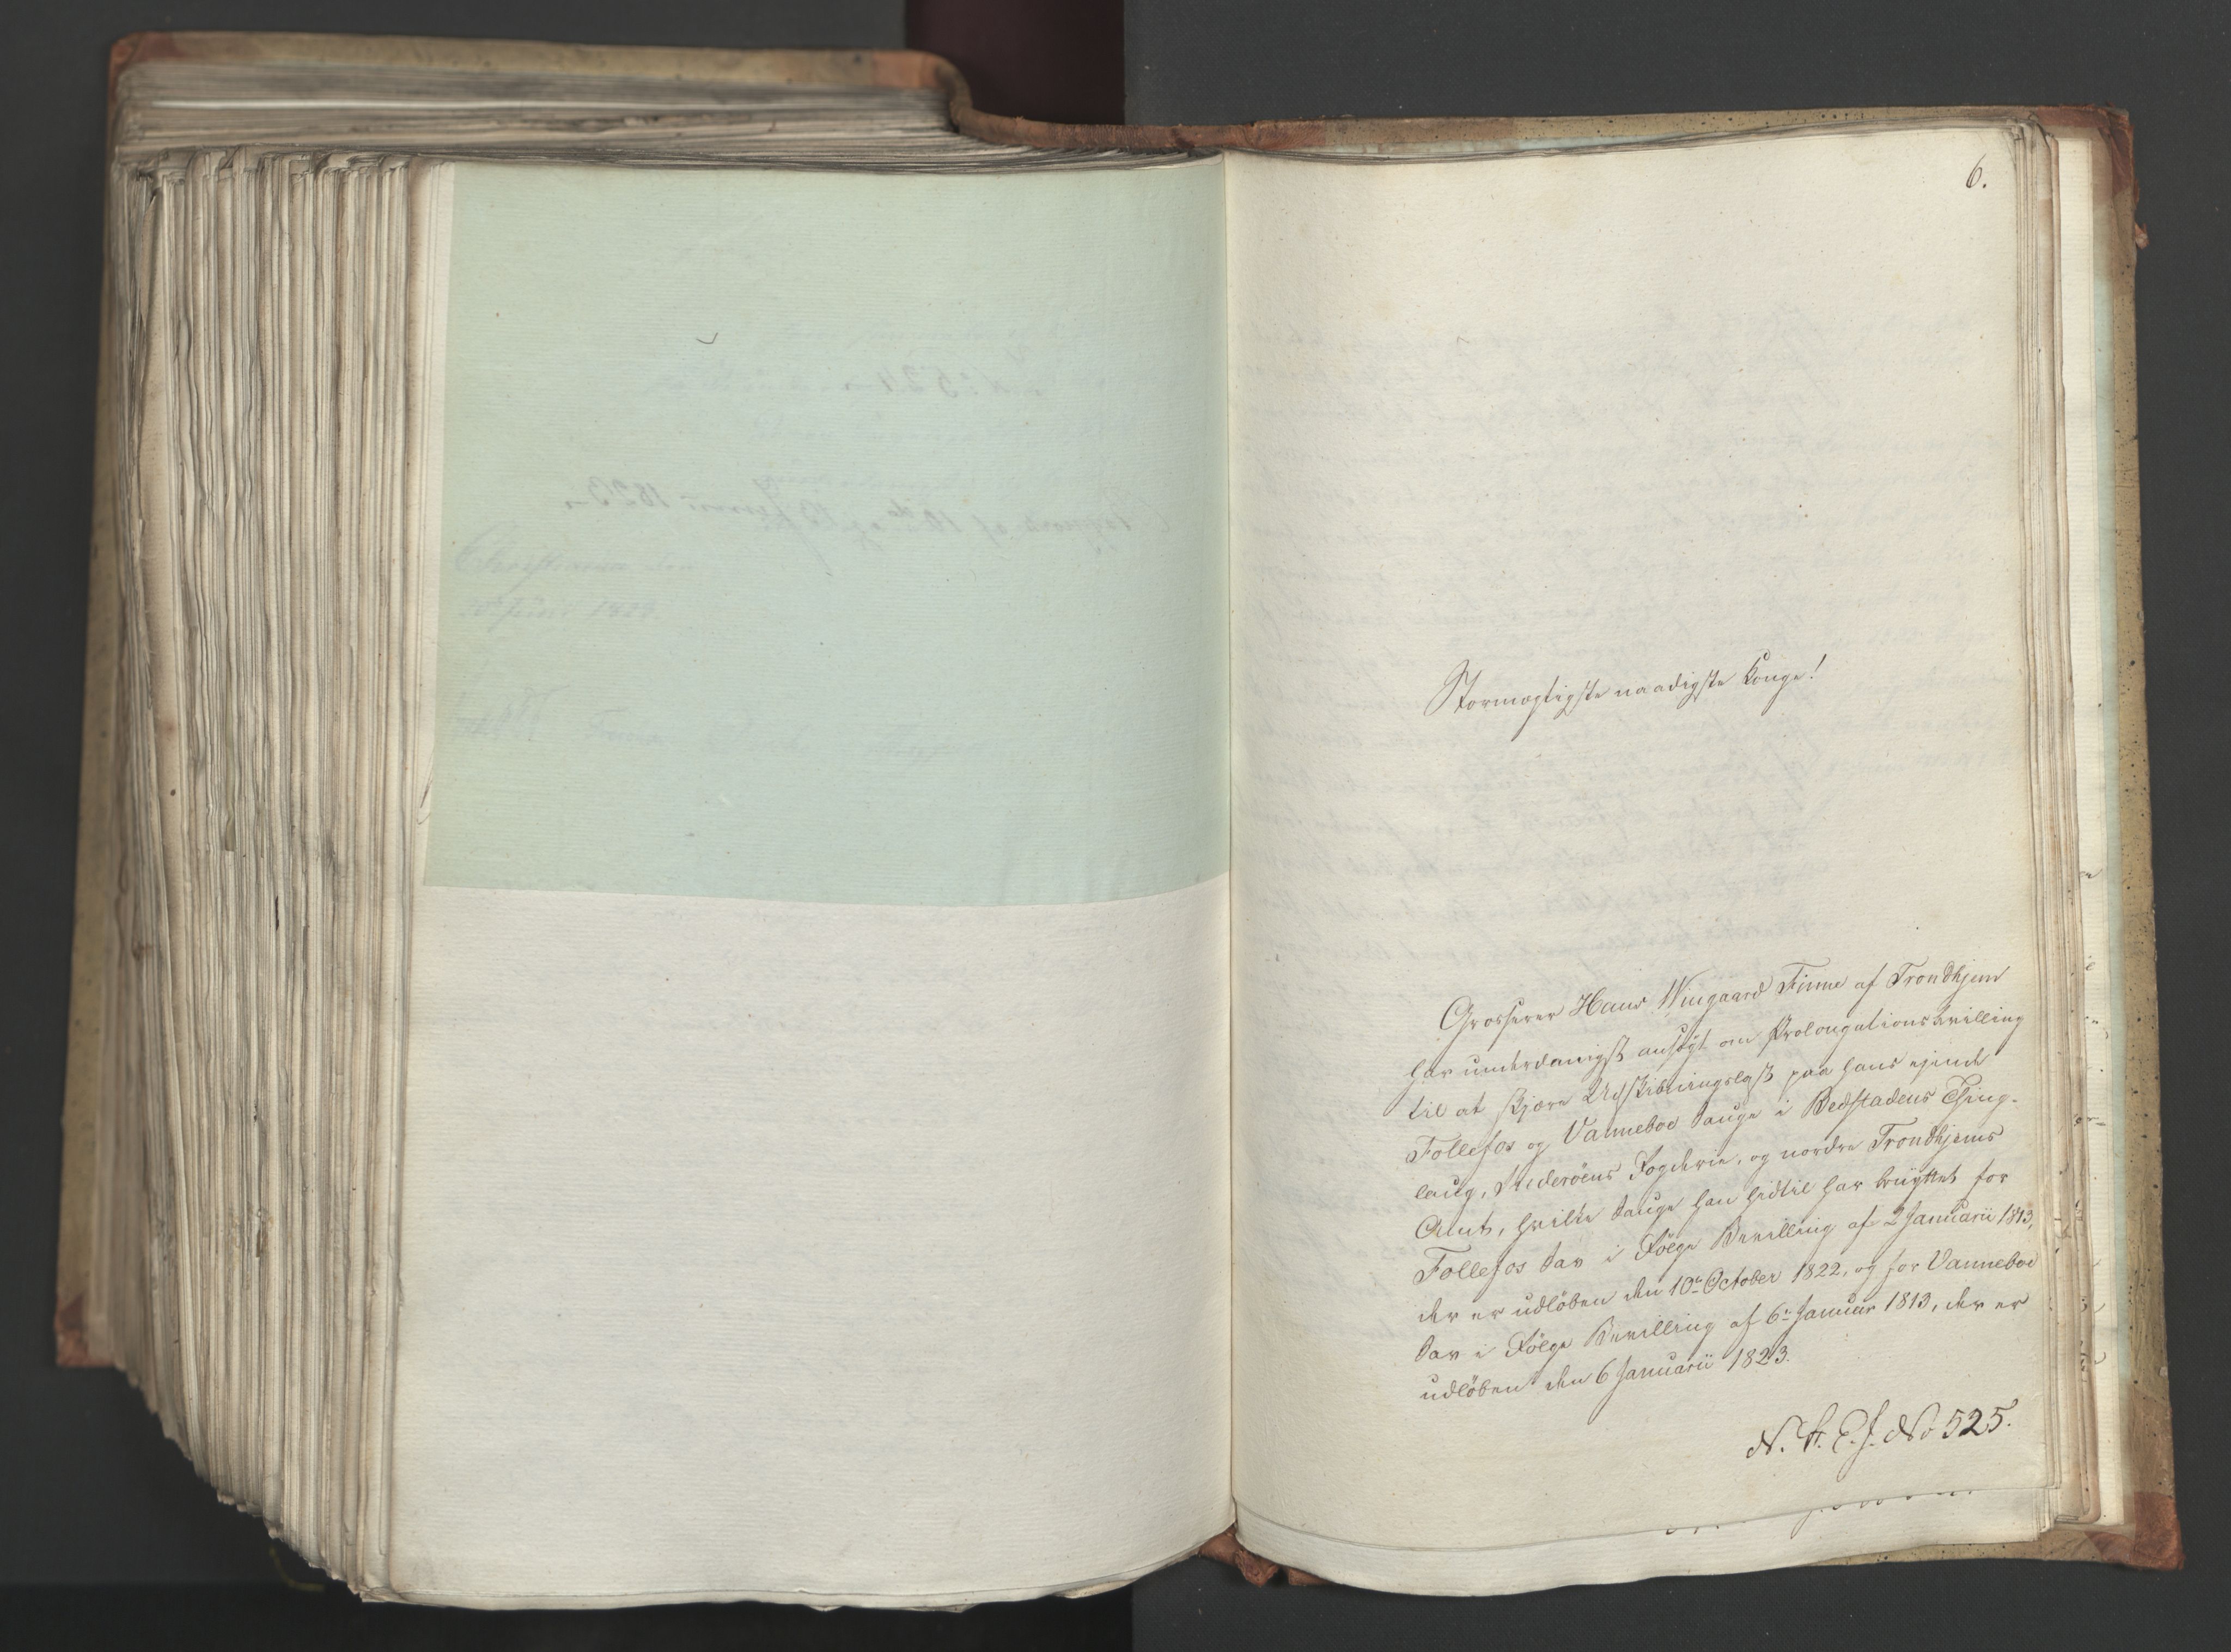 6.
Stormægtigste naadigste Konge!
Grosserer Hans Wingaard Finne af Trondhjem
har underdanigst ansøgt om Prolongationsbevilling
til at skjære Udskibningslast paa hans eiende
Follefos og Vanneboe Sauge i Bedstadens Thing-
laug, Inderøens Fogderie, og nordre Trondhjems
Amt, hvilke Sauge han hidtil har benyttet for
Follefos Sav i Følge Bevilling af 2 Januarii 1813,
der er udløben den 10de October 1822, og for Vanneboe
Sav i Følge Bevilling af 6te Januar 1813, der er
udløben den 6 Januarii 1823.
No 525.